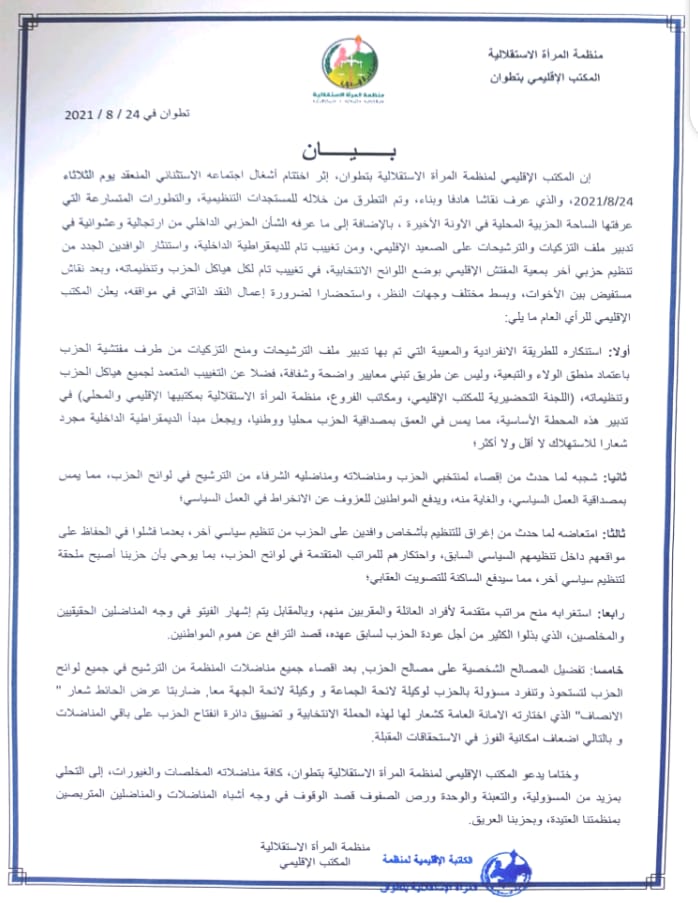 منظمة المرأة الاستقلالية
المكتب الإقليمي بتطوان
منظمة المرأة الاستقلالية
تطوان في 24 / 8 / 2021
بـــيـــان
إن المكتب الإقليمي لمنظمة المرأة الاستقلالية بتطوان، إثر اختتام أشغال اجتماعه الاستثنائي المنعقد يوم الثلاثاء
2021/8/24، والذي عرف نقاشا هادفا وبناء، وتم التطرق من خلاله للمستجدات التنظيمية، والتطورات المتسارعة التي
عرفتها الساحة الحزبية المحلية في الآونة الأخيرة ، بالإضافة إلى ما عرفه الشأن الحزبي الداخلي من ارتجالية وعشوائية في
تدبير ملف التزكيات والترشيحات على الصعيد الإقليمي، ومن تغييب تام للديمقراطية الداخلية، واستئثار الوافدين الجدد من
تنظيم حزبي آخر بمعية المفتش الإقليمي بوضع اللوائح الانتخابية، في تغييب تام لكل هياكل الحزب وتنظيماته، وبعد نقاش
مستفيض بين الأخوات، وبسط مختلف وجهات النظر، واستحضارا لضرورة إعمال النقد الذاتي في مواقفه، يعلن المكتب
الإقليمي للرأي العام ما يلي:
أولا: استنكاره للطريقة الانفرادية والمعيبة التي تم بها تدبير ملف الترشيحات ومنح التزكيات من طرف مفتشية الحزب
باعتماد منطق الولاء والتبعية، وليس عن طريق تبني معايير واضحة وشفافة، فضلا عن التغييب المتعمد لجميع هياكل الحزب
وتنظيماته، (اللجنة التحضيرية للمكتب الإقليمي، ومكاتب الفروع، منظمة المرأة الاستقلالية بمكتبيها الإقليمي والمحلي) في
تدبير هذه المحطة الأساسية، مما يمس في العمق بمصداقية الحزب محليا ووطنيا، ويجعل مبدأ الديمقراطية الداخلية مجرد
شعارا للاستهلاك لا أقل ولا أكثر؛
ثانيا: شجبه لما حدث من إقصاء لمنتخبي الحزب ومناضلاته ومناضليه الشرفاء من الترشيح في لوائح الحزب، مما يمس
بمصداقية العمل السياسي، والغاية منه، ويدفع المواطنين للعزوف عن الانخراط في العمل السياسي؛
ثالثا: امتعاضه لما حدث من إغراق للتنظيم بأشخاص وافدين على الحزب من تنظيم سياسي آخر، بعدما فشلوا في الحفاظ على
مواقعهم داخل تنظيمهم السياسي السابق، واحتكارهم للمراتب المتقدمة في لوائح الحزب، بما يوحي بأن حزبنا أصبح ملحقة
لتنظيم سياسي آخر، مما سيدفع الساكنة للتصويت العقابي؛
رابعا: استغرابه منح مراتب متقدمة لأفراد العائلة والمقربين منهم، وبالمقابل يتم إشهار الفيتو في وجه المناضلين الحقيقيين
والمخلصين، الذي بذلوا الكثير من أجل عودة الحزب لسابق عهده، قصد الترافع عن هموم المواطنين.
خامسا: تفضيل المصالح الشخصية على مصالح الحزب, بعد اقصاء جميع مناضلات المنظمة من الترشيح في جميع لوائح
الحزب لتستحوذ وتنفرد مسؤولة بالحزب لوكيلة لائحة الجماعة و وكيلة لائحة الجهة معا, ضاربتا عرض الحائط شعار "
الانصاف" الذي اختارته الامانة العامة كشعار لها لهذه الحملة الانتخابية و تضييق دائرة انفتاح الحزب على باقي المناضلات
و بالتالي اضعاف امكانية الفوز في الاستحقاقات المقبلة.
وختاما يدعو المكتب الإقليمي لمنظمة المرأة الاستقلالية بتطوان، كافة مناضلاته المخلصات والغيورات، إلى التحلي
بمزيد من المسؤولية، والتعبئة والوحدة ورص الصفوف قصد الوقوف في وجه أشباه المناضلات والمناضلين المتربصين
بمنظمتنا العتيدة، وبحزبنا العريق.
منظمة المرأة الاستقلالية
المكتب الإقليمي
الكاتبة الإقليمية لمنظمة
المرأة الإستقلالية بتطوان